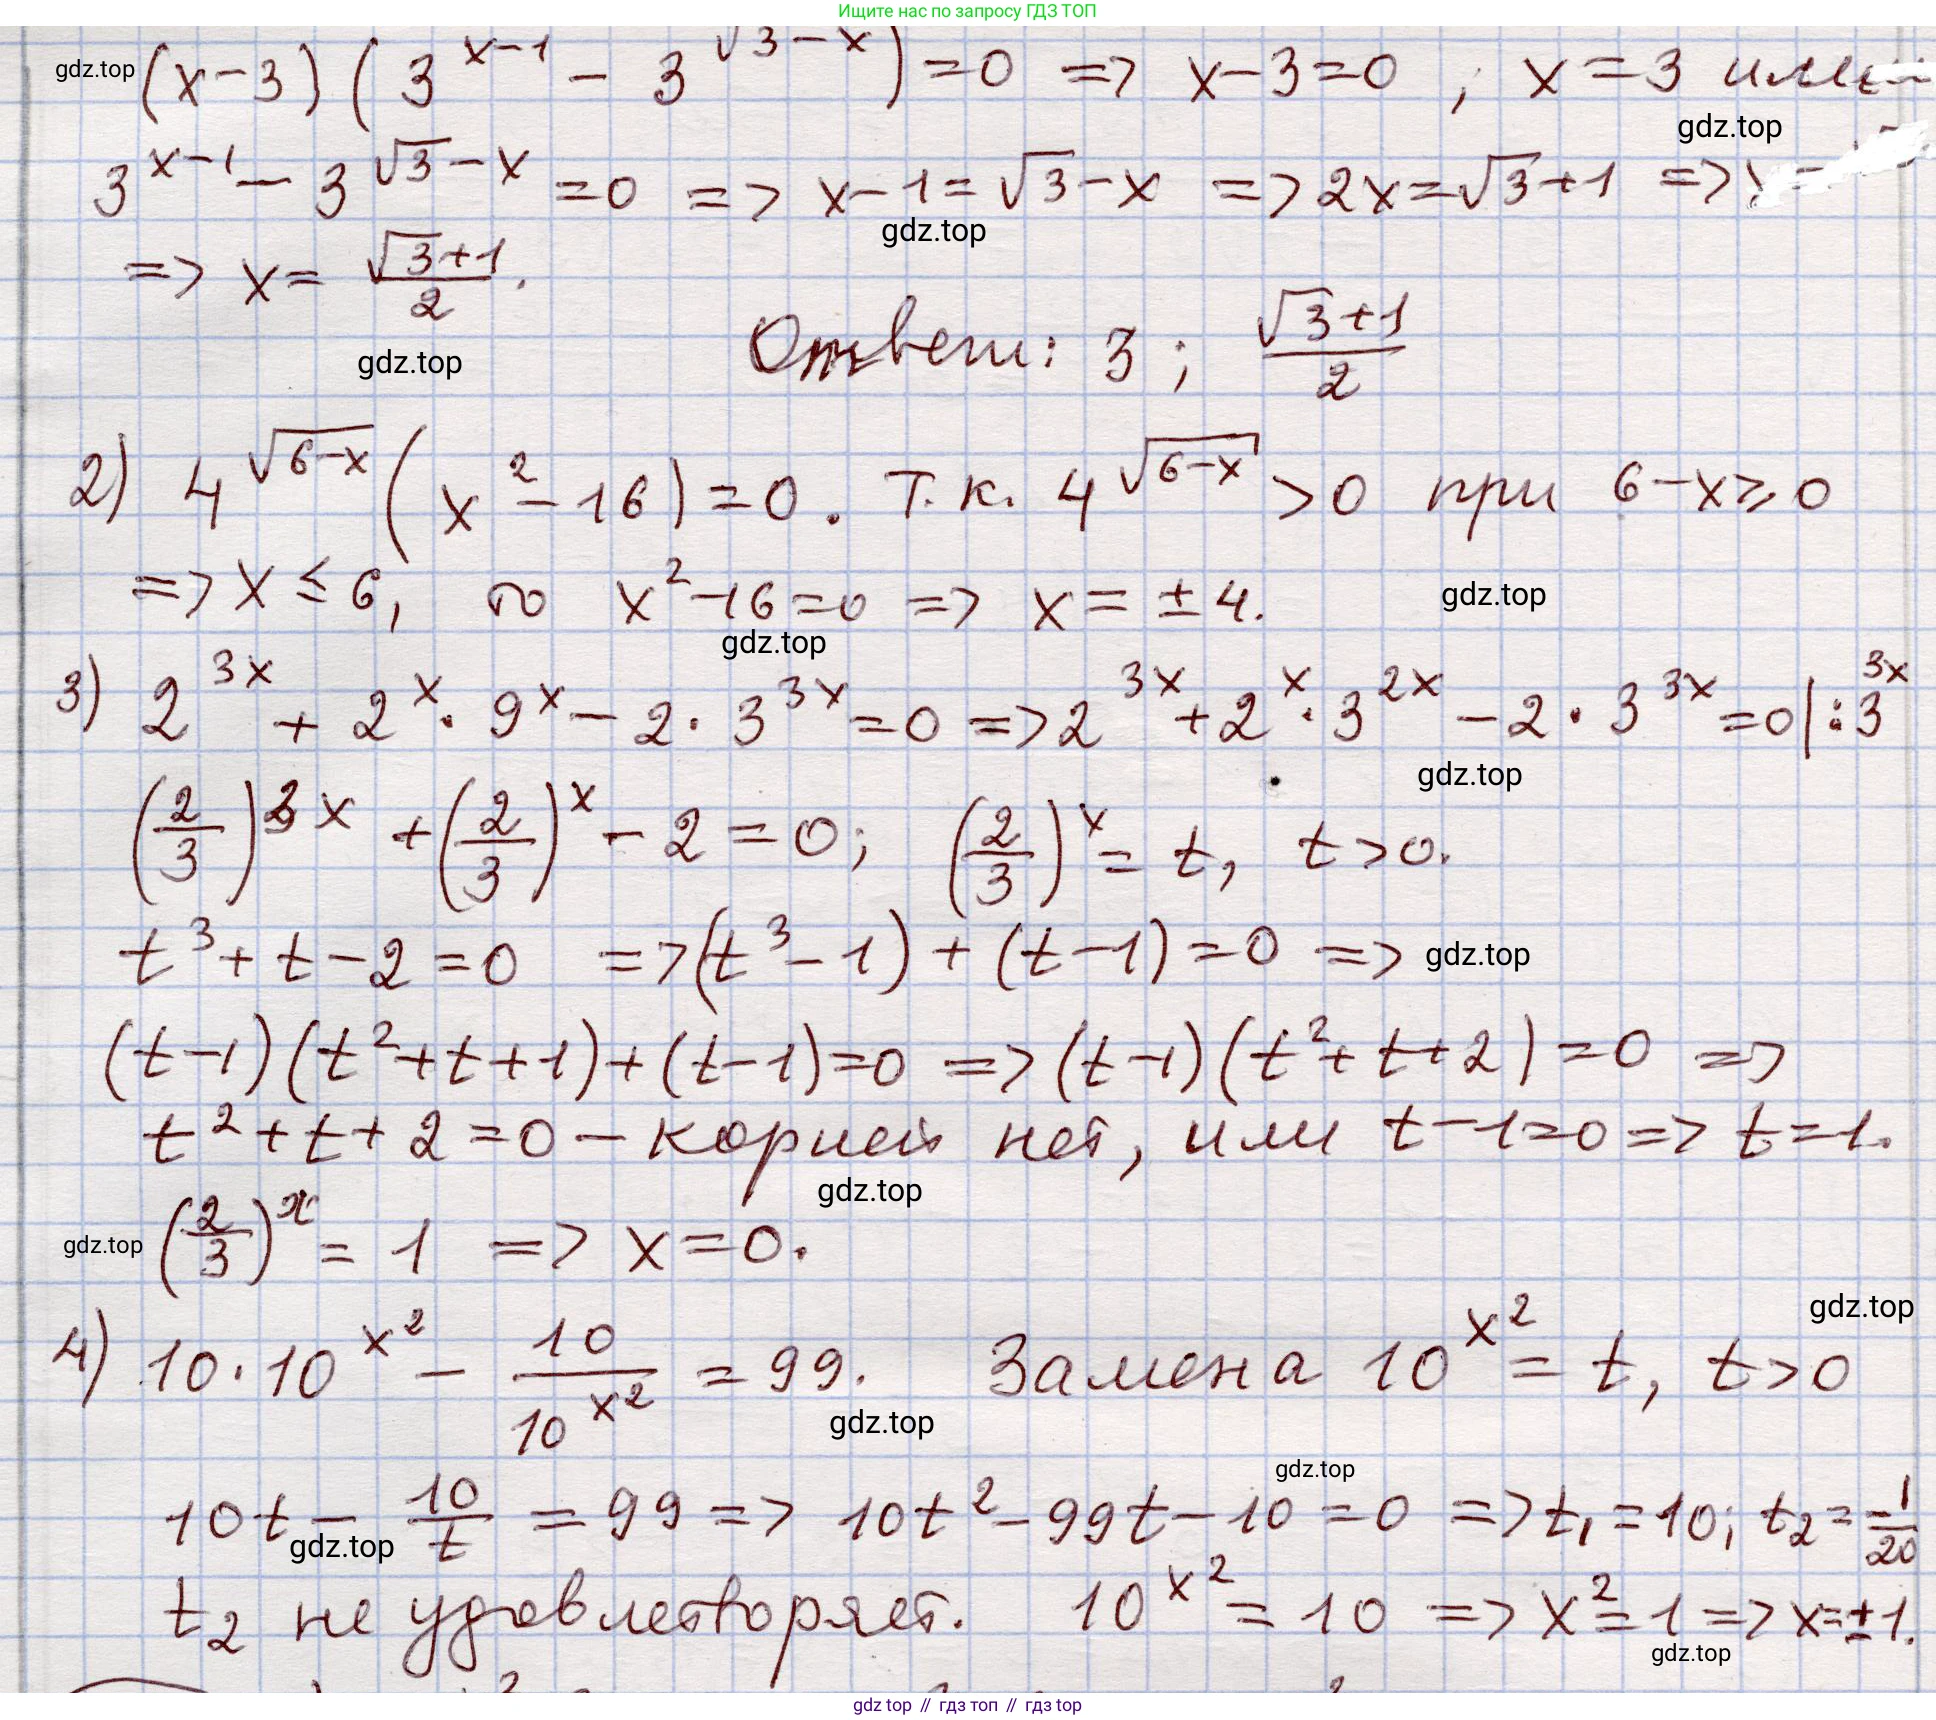 Ищите нас по запросу ГДЗ ТОП
gdz.top (x-3)(3^(x-1) - 3^(√3-x)) = 0 => x-3=0 ; x=3 или
gdz.top
3^(x-1) - 3^(√3-x) = 0 => x-1=√3-x => 2x=√3+1 => x=
gdz.top
=> x = (√3+1)/2.
Ответ: 3 ; (√3+1)/2
gdz.top
2) 4^√(6-x) (x²-16)=0. Т.к. 4^√(6-x) >0 при 6-x≥0
=> x ≤ 6, то x²-16=0 => x = ±4.
gdz.top
gdz.top
3) 2^(3x) + 2^x · 9^x - 2 · 3^(3x) = 0 => 2^(3x) + 2^x · 3^(2x) - 2 · 3^(3x) = 0 | : 3^(3x)
gdz.top
(2/3)^(3x) + (2/3)^x - 2 = 0; (2/3)^x = t, t>0.
t³+t-2=0 => (t³-1)+(t-1)=0 => gdz.top
(t-1)(t²+t+1)+(t-1)=0 => (t-1)(t²+t+2)=0 =>
t²+t+2=0 - корней нет, или t-1=0 => t=1.
gdz.top
gdz.top (2/3)^x = 1 => x=0.
gdz.top
4) 10·10^(x²) - 10/10^(x²) = 99. Замена 10^(x²) = t, t>0
gdz.top
gdz.top
10t - 10/t = 99 => 10t²-99t-10=0 => t₁=10; t₂=-1/20
gdz.top
t₂ не удовлетворяет. 10^(x²) = 10 => x²=1 => x=±1.
gdz.top
gdz top // гдз топ // гдз top